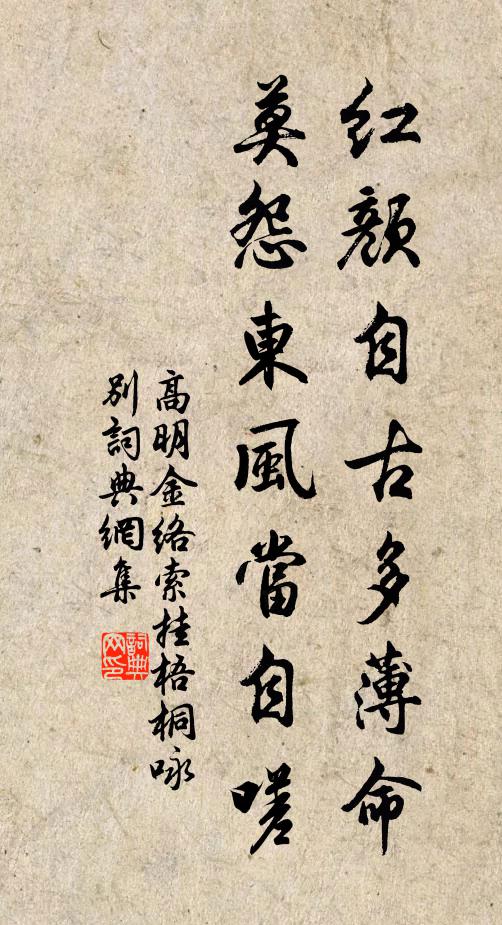 红顏自古多薄命
莫怨東風當自嗟
高明金络索挂梧桐咏
别詞典網集
詞典
网印